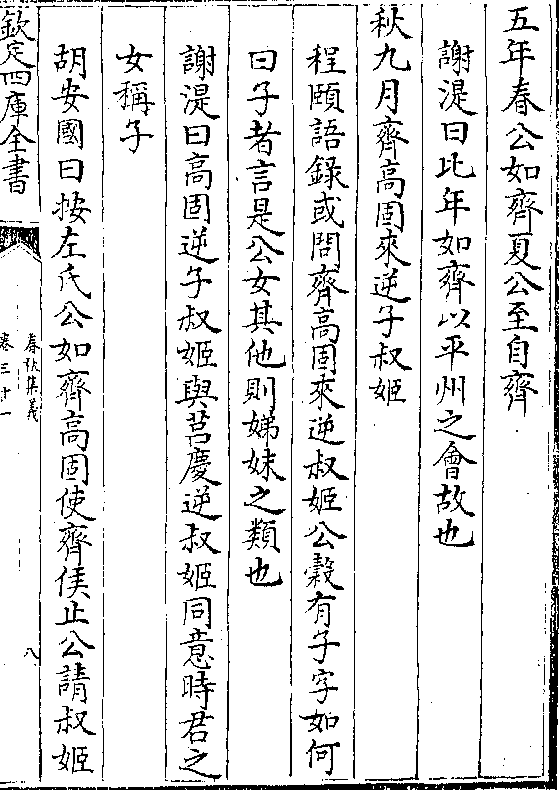 五年春公如齊夏公至自齊
謝湜曰比年如齊以平州之會故也
秋九月齊高固來逆子叔姬
程頤語錄或問齊高固來逆叔姬公穀有子字如何
曰子者言是公女其他則娣妹之類也
謝湜曰高固逆子叔姬與莒慶逆叔姬同意時君之
女稱子
胡安國曰按左氏公如齊高固使齊侯止公請叔姬
欽定四庫全書
春秋集義
卷三十一
八